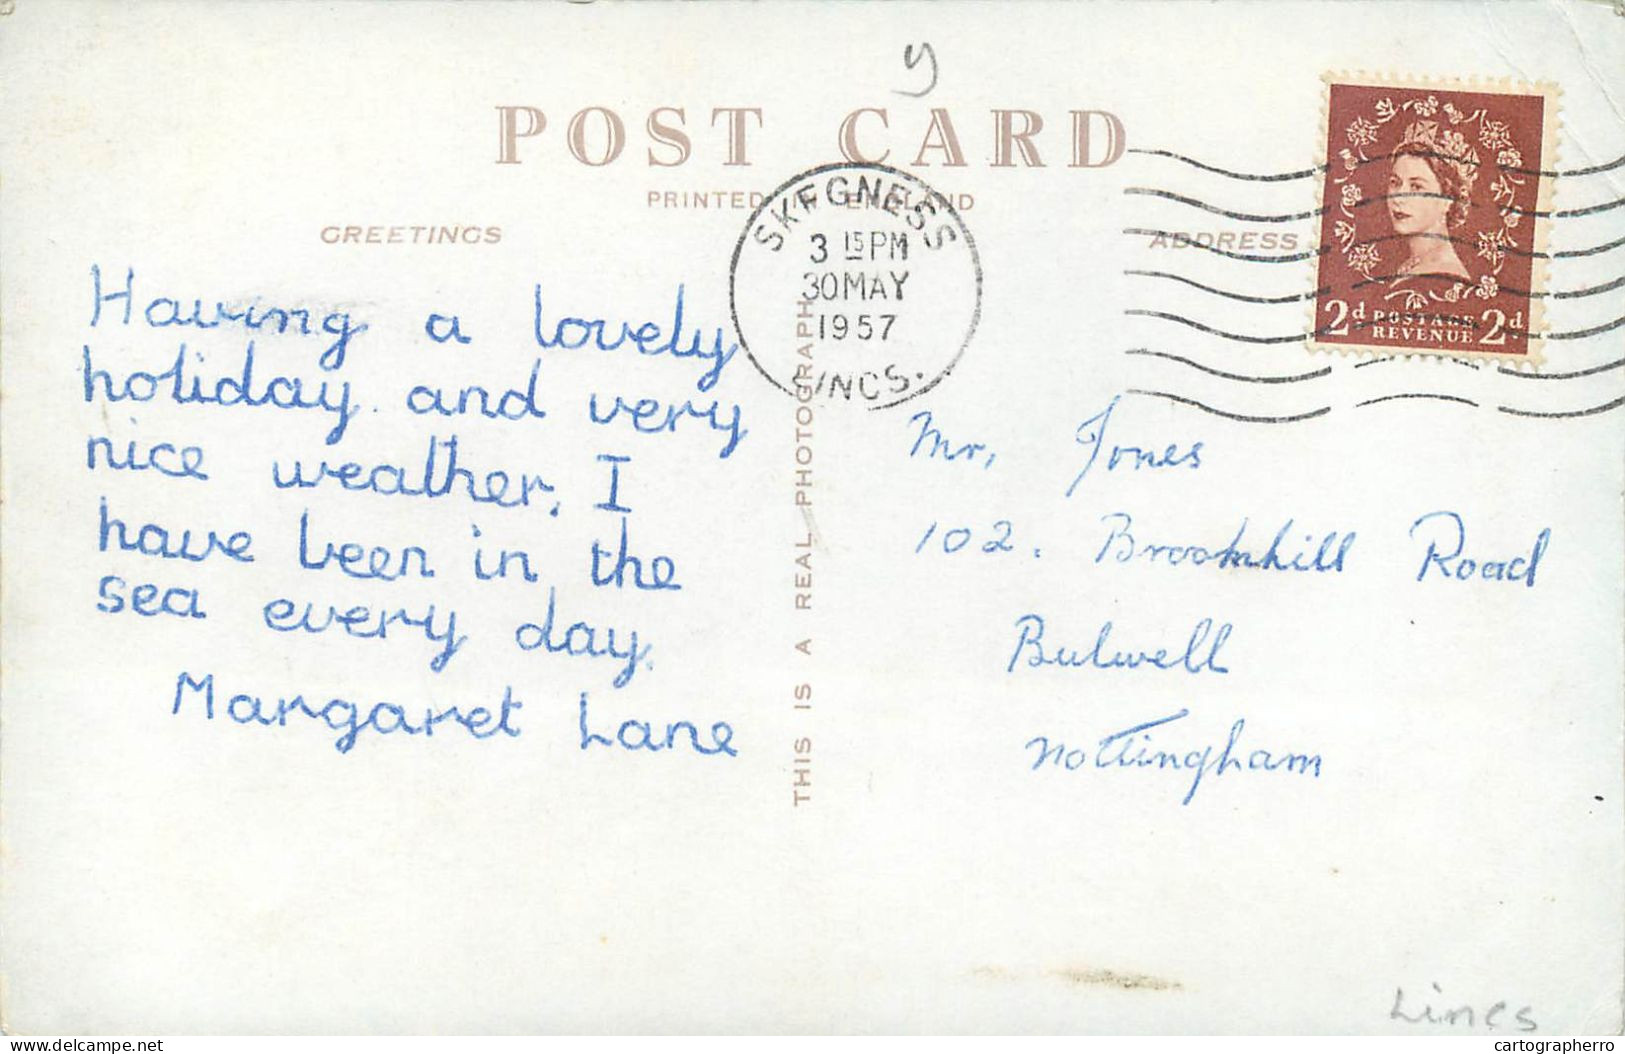 y
POST CARD
PRINTED IN ENGLAND
GREETINGS
ADDRESS
SKEGNESS
3 15 PM
30 MAY
1957
LINCS.
2d POSTAGE REVENUE 2d
Having a lovely
holiday and very
nice weather. I
have been in the
sea every day.
Margaret Lane
THIS IS A REAL PHOTOGRAPH
Mr. Jones
102. Broomhill Road
Bulwell
Nottingham
Lincs
delcampe.net
cartographerro